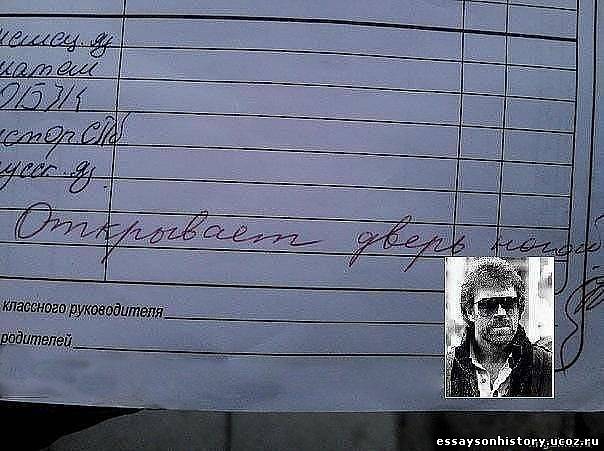 немец. яз
матем
ОБЖ
истор СПб
русск. яз.
Открывает дверь ногой
классного руководителя
родителей
essaysonhistory.ucoz.ru